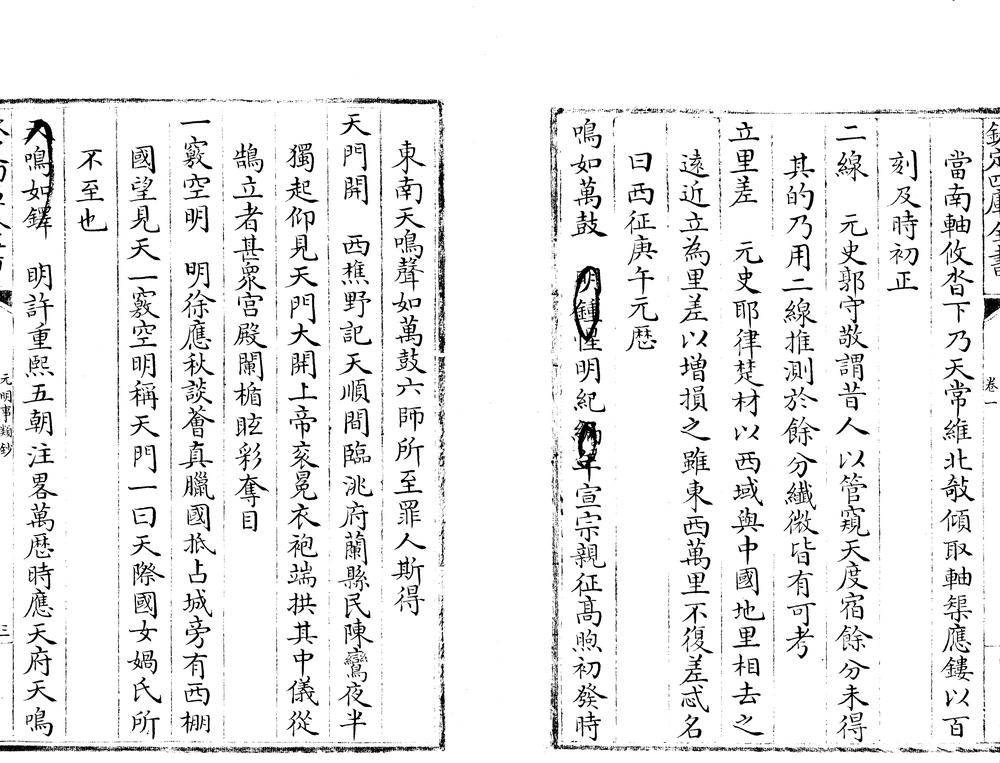 欽定四庫全書
卷一
當南軸攸沓下乃天常維北欹傾取軸槼應鏤以百
刻及時初正
二線　元史郭守敬謂昔人以管窺天度宿餘分未得
其的乃用二線推測於餘分纎微皆有可考
立里差　元史耶律楚材以西域與中國地里相去之
逺近立為里差以增損之雖東西萬里不復差忒名
曰西征庚午元厯
鳴如萬鼓　明鍾惺明紀編年宣宗親征髙煦初發時
東南天鳴聲如萬鼓六師所至罪人斯得
天門開　西樵野記天順間臨洮府蘭縣民陳鸞夜半
獨起仰見天門大開上帝衮冕衣袍端拱其中儀從
鵠立者甚衆宫殿闌楯眩彩奪目
一竅空明　明徐應秋談薈真臘國抵占城旁有西棚
國望見天一竅空明稱天門一曰天際國女媧氏所
不至也
天鳴如鐸　明許重熙五朝注畧萬厯時應天府天鳴
元明事類鈔
三